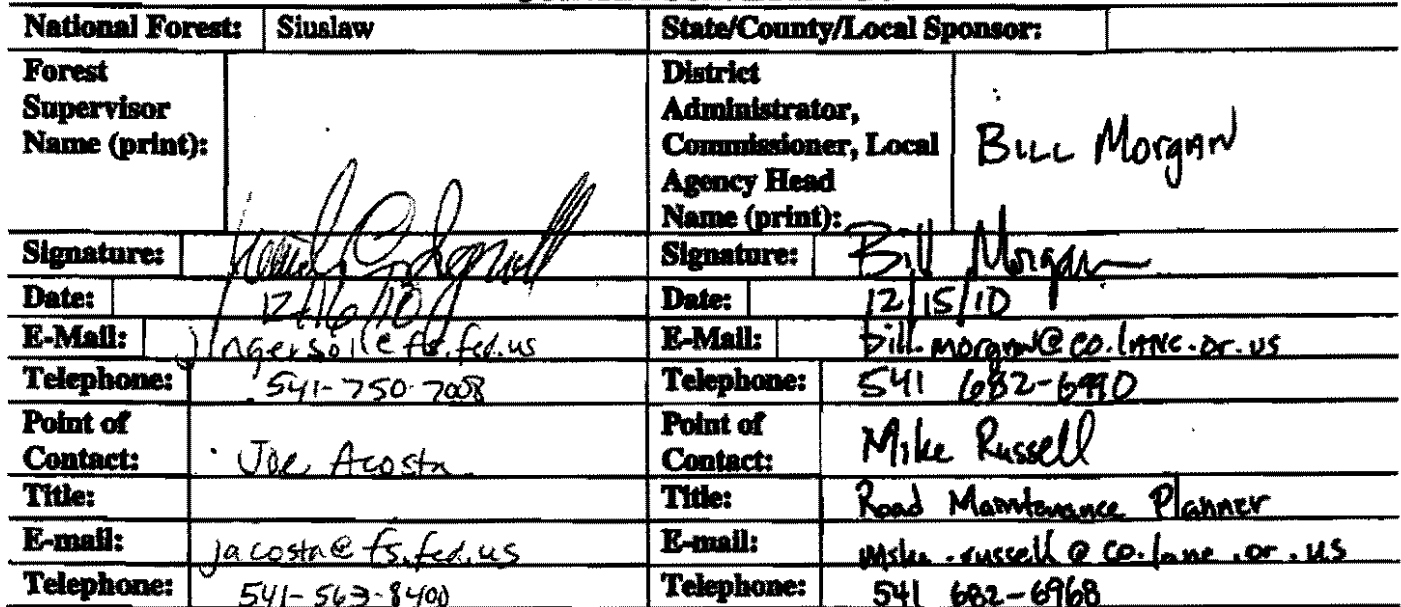 National Forest: Siuslaw State/County/Local Sponsor:
Forest Supervisor Name (print):
District Administrator, Commissioner, Local Agency Head Name (print): Bill Morgan
Signature: Signature: Bill Morgan
Date: 12/16/10 Date: 12/15/10
E-Mail: jingersoll@fs.fed.us E-Mail: bill.morgan@co.lane.or.us
Telephone: 541-750-7008 Telephone: 541 682-6990
Point of Contact: Joe Acosta Point of Contact: Mike Russell
Title: Title: Road Maintenance Planner
E-mail: jacosta@fs.fed.us E-mail: mike.russell@co.lane.or.us
Telephone: 541-563-8400 Telephone: 541 682-6968